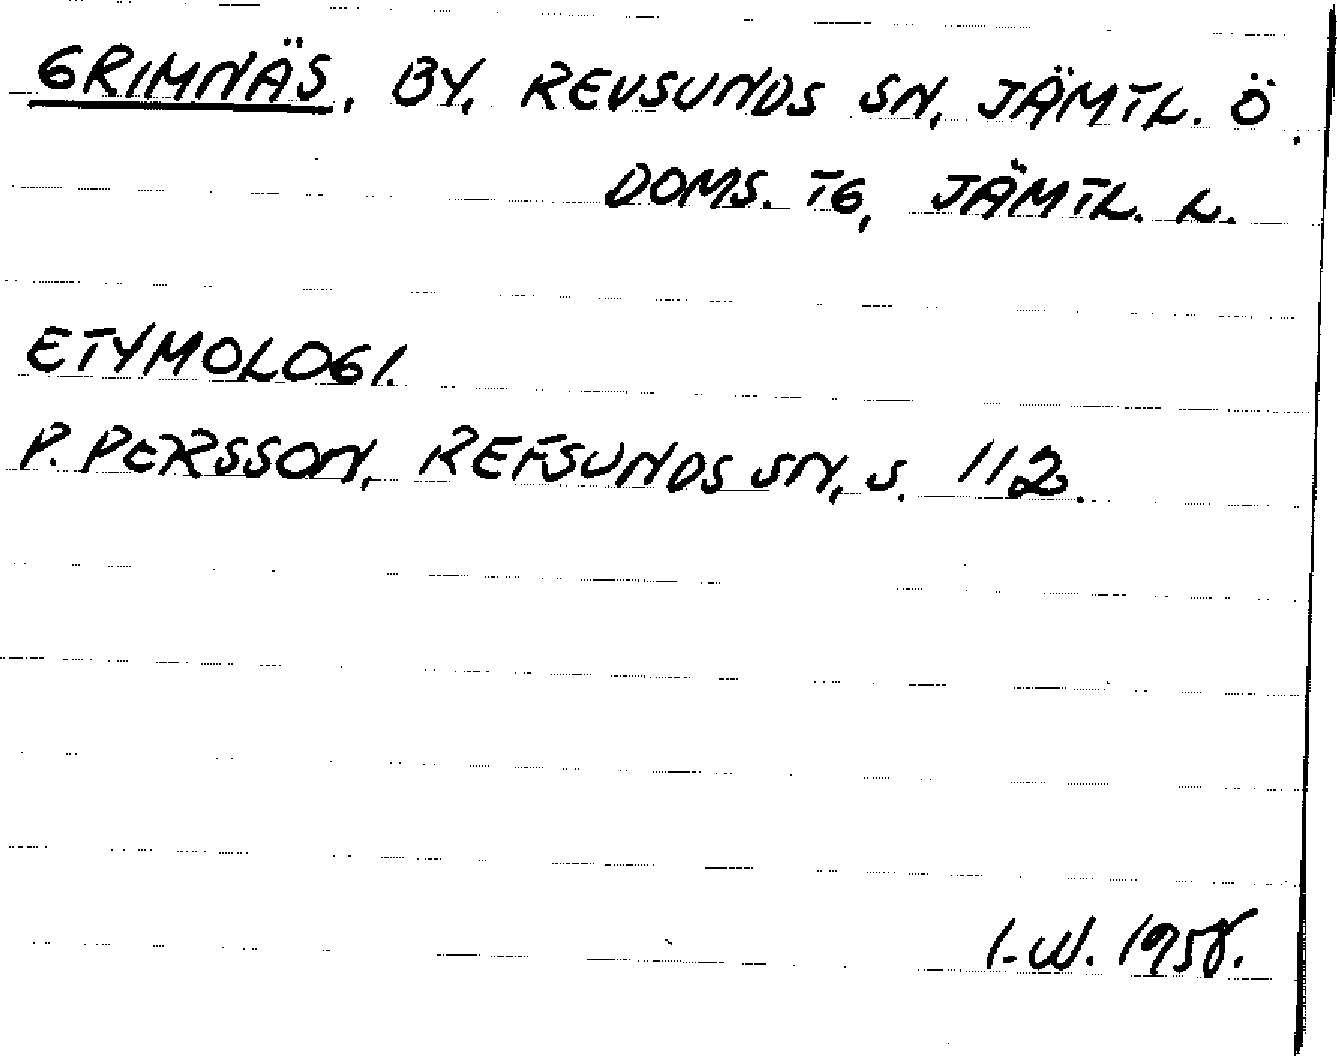 GRIMNÄS, BY, REVSUNDS SN, JÄMTL. Ö.
DOMS. TG, JÄMTL. L.
ETYMOLOGI.
P. PERSSON, REFSUNDS SN, S. 112.
I-W. 1958.